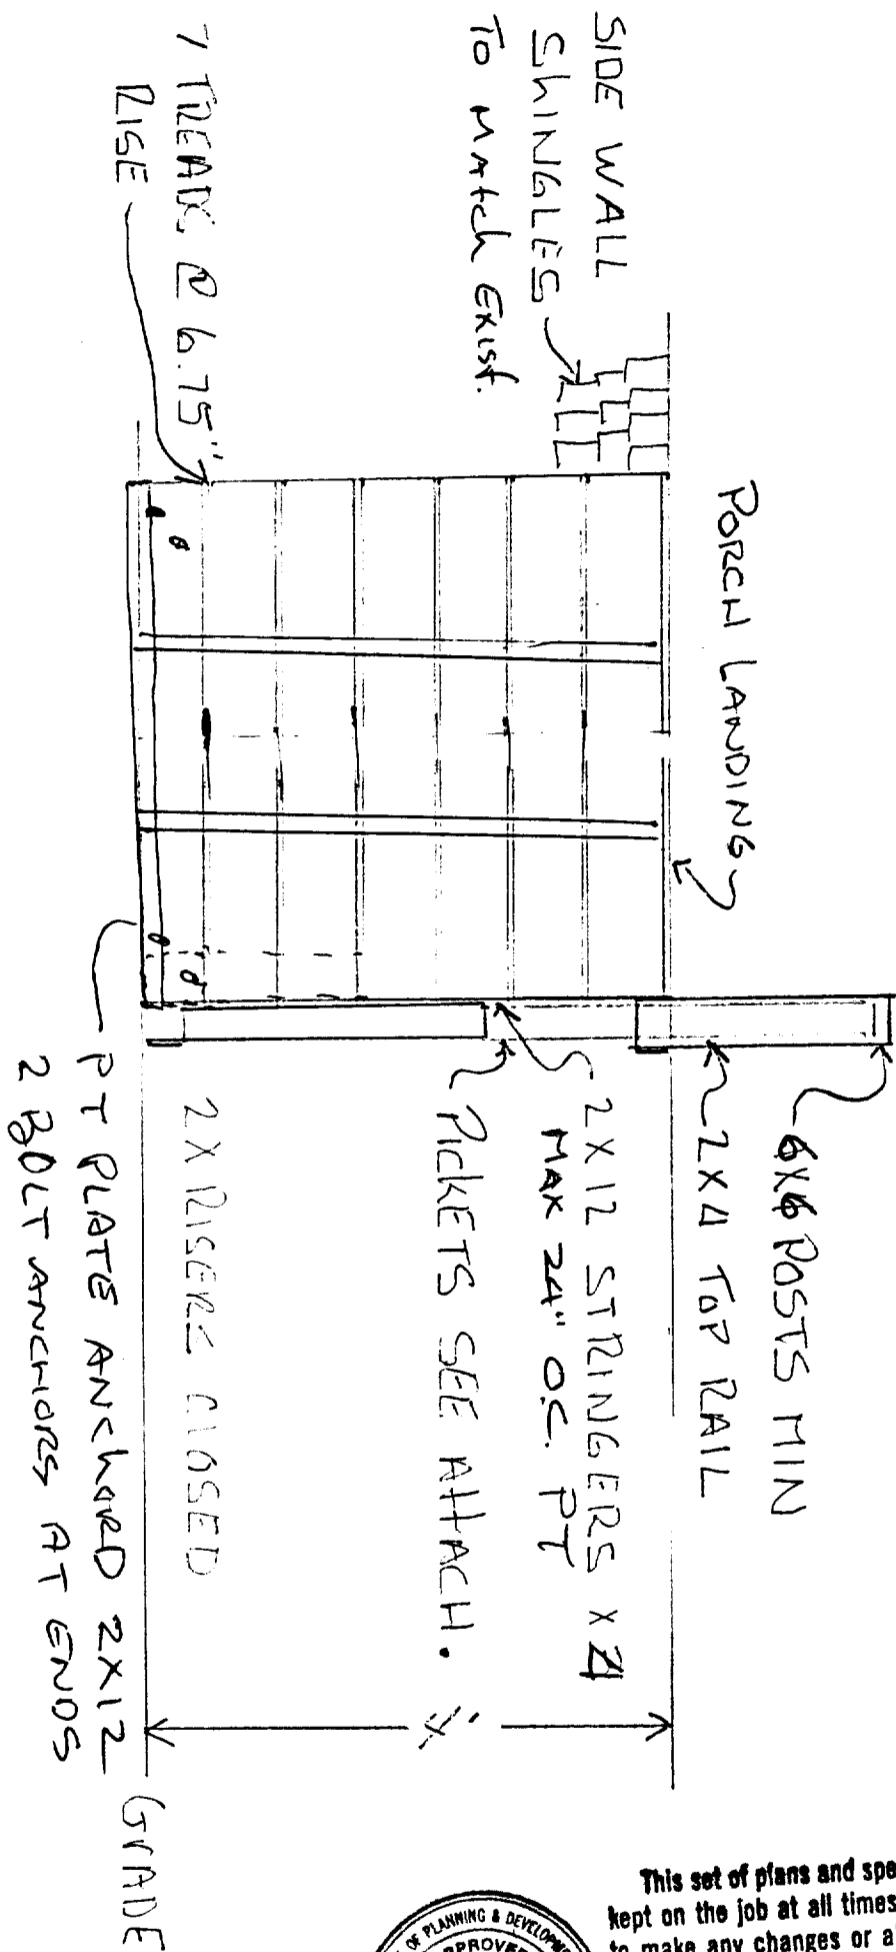 SIDE WALL
SHINGLES
TO MATCH EXIST.
7 TREADS @ 6.75"
RISE
PORCH LANDING
6X6 POSTS MIN
2X4 TOP RAIL
2X12 STRINGERS X 4
MAX 24" O.C. PT
PICKETS SEE ATTACH.
2X RISERS CLOSED
PT PLATE ANCHARD 2X12
2 BOLT ANCHORS AT ENDS
4'
GRADE
This set of plans and spe
kept on the job at all times
to make any changes or a
OF PLANNING & DEVELOPM
PPROVE